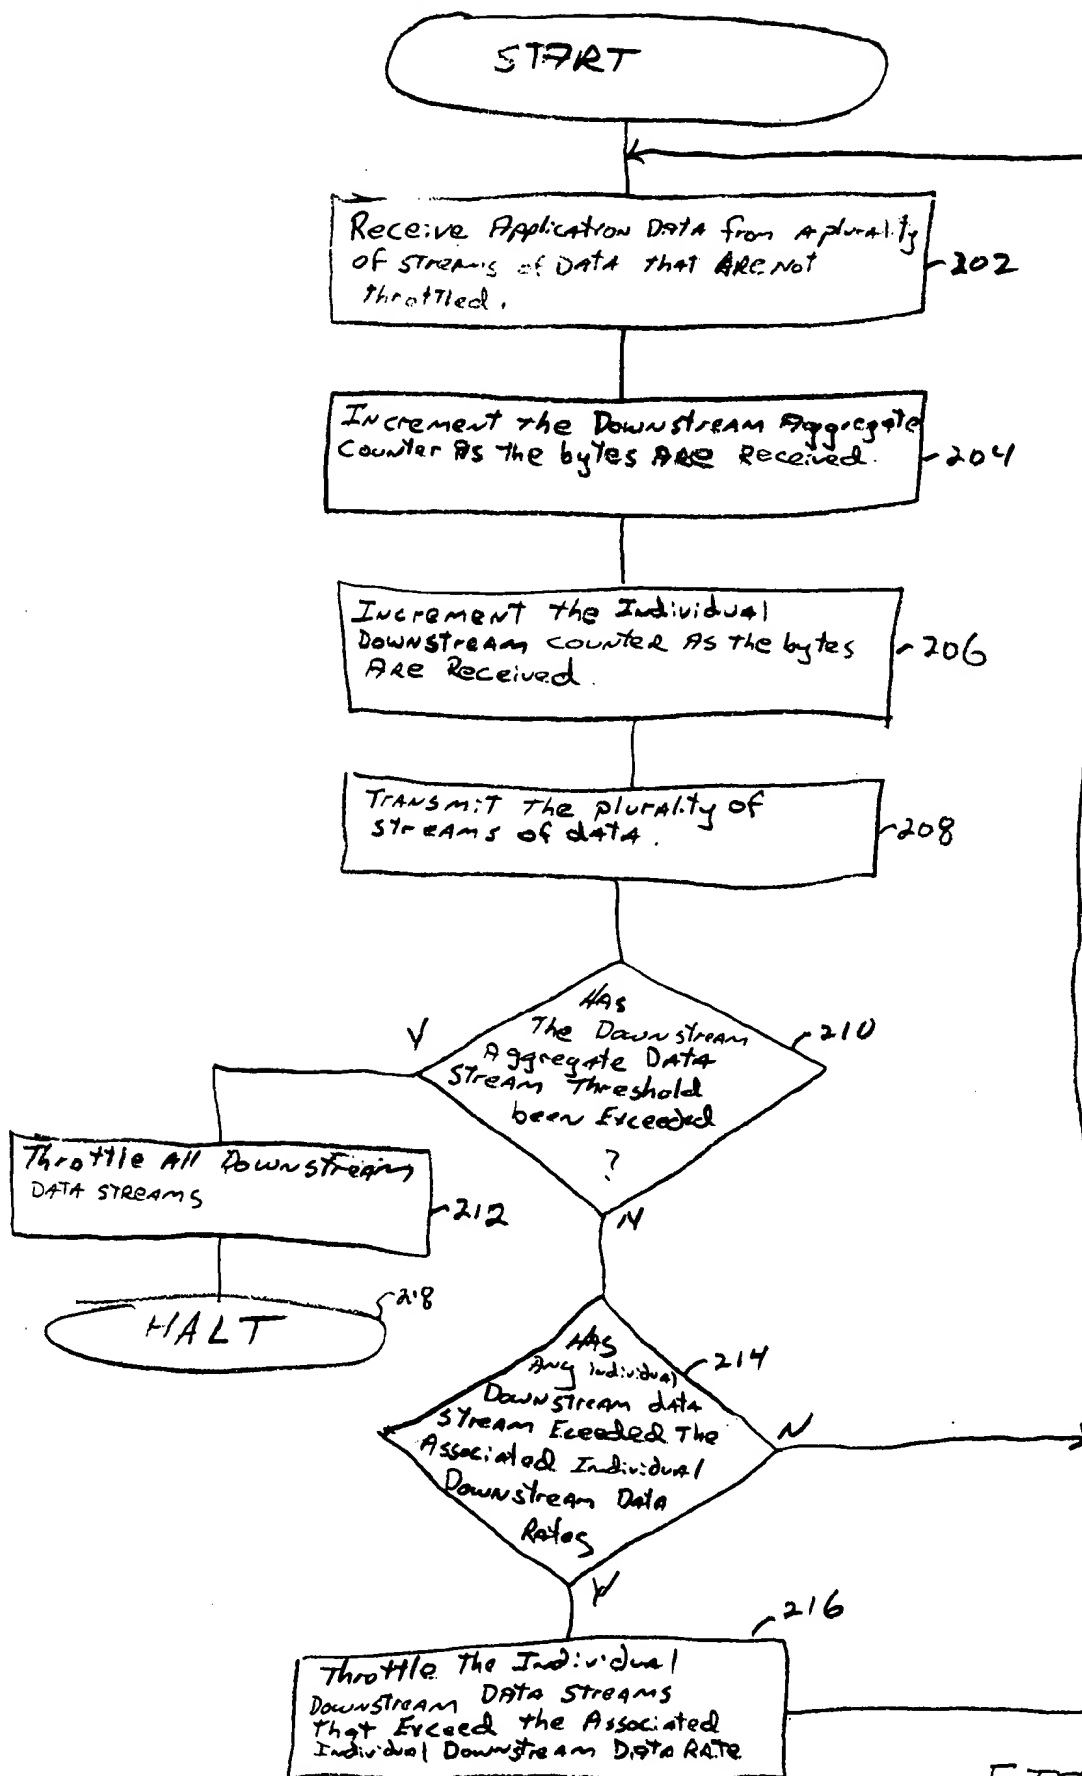 START
Receive Application Data from a plurality
of streams of Data that ARE Not
throttled.
202
Increment the Downstream Aggregate
counter As the bytes ARE Received.
204
Increment the Individual
Downstream counter As the bytes
ARE Received.
206
Transmit The plurality of
streams of data.
208
Has
The Downstream
Aggregate Data
Stream Threshold
been Exceeded
?
210
Y
N
Throttle All Downstream
Data streams
212
HALT
218
Has
Any individual
Downstream data
stream Eceeded The
Associated Individual
Downstream Data
Rates
214
N
Y
216
Throttle The Individual
Downstream Data Streams
that Exceed the Associated
Individual Downstream Data Rate